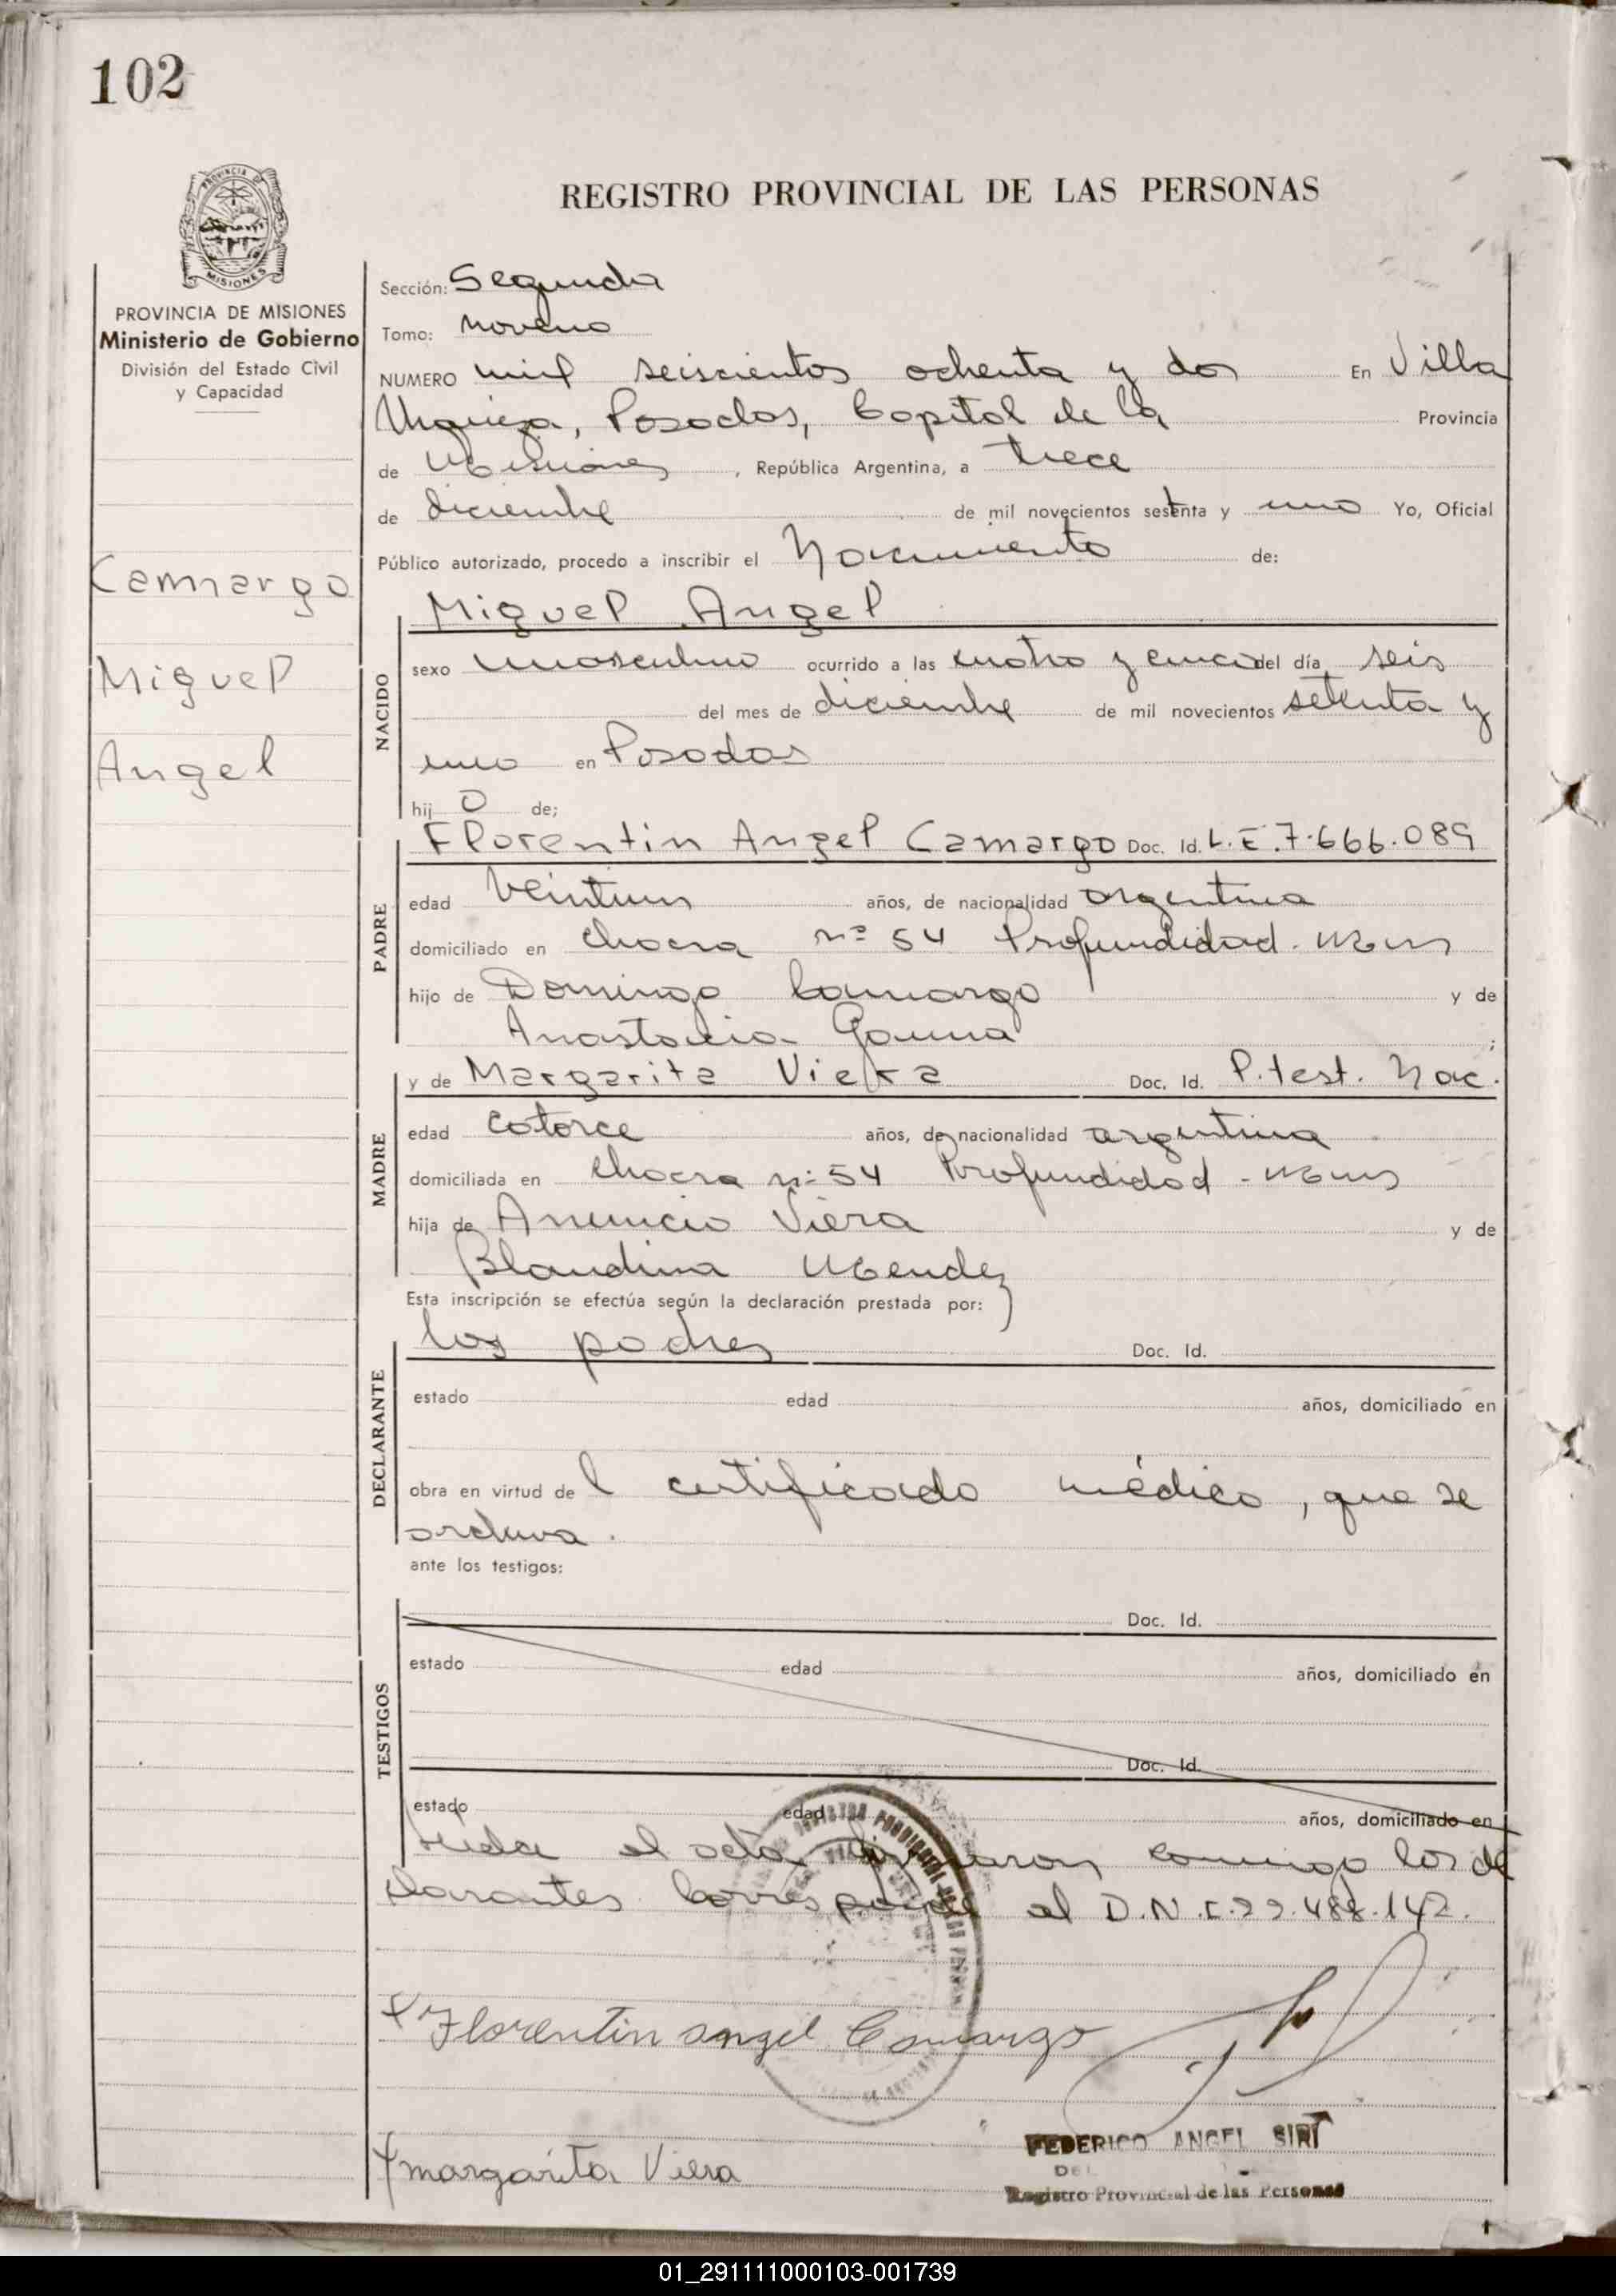 102
PROVINCIA DE
MISIONES
REGISTRO PROVINCIAL DE LAS PERSONAS
PROVINCIA DE MISIONES
Ministerio de Gobierno
División del Estado Civil
y Capacidad
Camargo
Miguel
Angel
Sección: Segunda
Tomo: noveno
NUMERO mil seiscientos ochenta y dos En Villa
Urquiza, Posadas, Capital de la Provincia
de Misiones, República Argentina, a trece
de diciembre de mil novecientos sesenta y uno Yo, Oficial
Público autorizado, procedo a inscribir el Nacimiento de:
NACIDO
Miguel Angel
sexo masculino ocurrido a las cuatro y cinco del día seis
del mes de diciembre de mil novecientos setenta y
uno en Posadas
hij o de;
PADRE
Florentin Angel Camargo Doc. Id. L.E. 7.666.089
edad veintiun años, de nacionalidad argentina
domiciliado en chacra nº 54 Profundidad - Mnes
hijo de Domingo Camargo y de
Anastacia Gauna ;
MADRE
y de Margarita Viera Doc. Id. P. test. Nac.
edad catorce años, de nacionalidad argentina
domiciliada en chacra nº 54 Profundidad - Mnes
hija de Anuncio Viera y de
Blandina Mendez
Esta inscripción se efectúa según la declaración prestada por:
DECLARANTE
los padres Doc. Id.
estado edad años, domiciliado en
obra en virtud de l certificado médico, que se
archiva.
ante los testigos:
TESTIGOS
Doc. Id.
estado edad años, domiciliado en
Doc. Id.
estado edad años, domiciliado en
Leida el acta, firmaron conmigo los de
clarantes Corresponde al D.N.I. 22.488.142.
Florentin angel Camargo
margarita Viera
FEDERICO ANGEL SIRI
DEL
Registro Provincial de las Personas
01_291111000103-001739